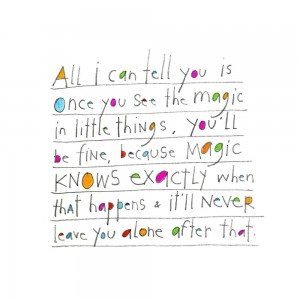 All i can tell you is
once you see the magic
in little things, you'll
be fine, because Magic
KNOWS exactly when
that happens & it'll NEVER
leave you alone after that.